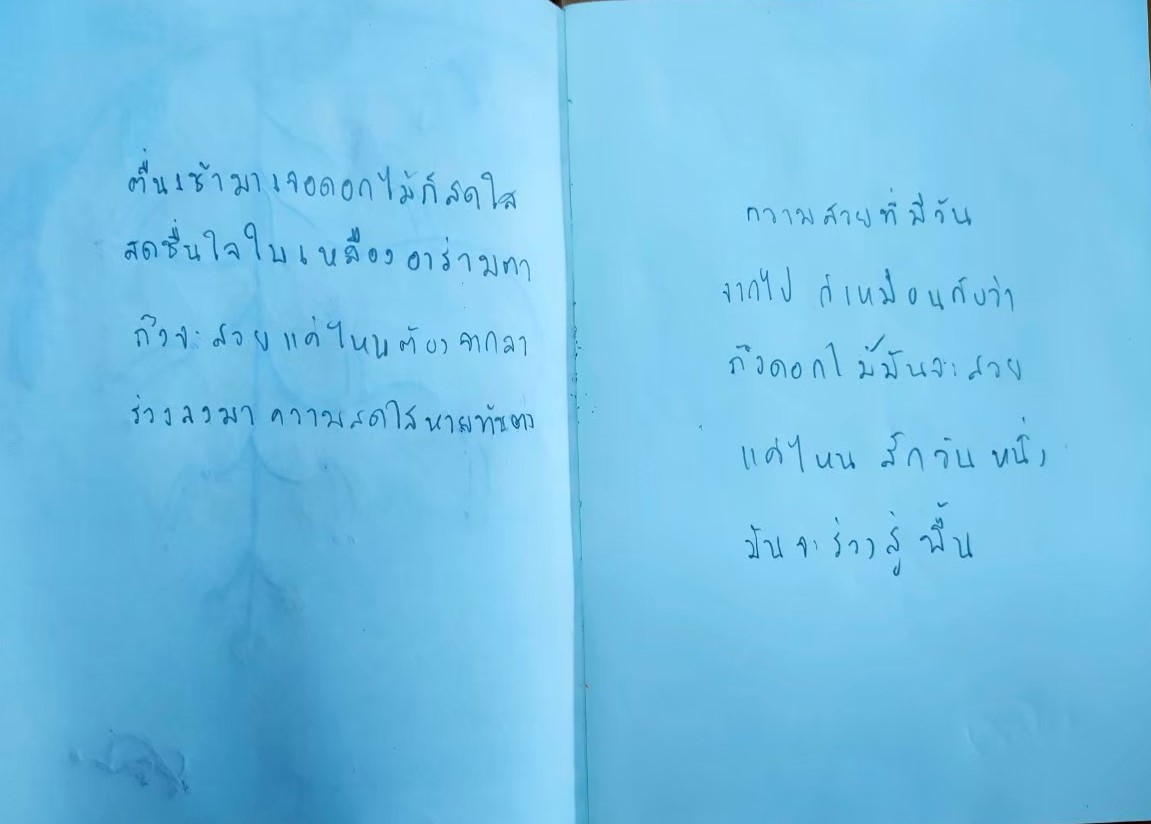 ตื่นเช้ามาเจอดอกไม้ก็สดใส
สดชื่นใจใบเหลืองอร่ามตา
ถึงจะสวยแค่ไหนต้องจากลา
ร่วงลงมาความสดใสหาย
ความสวยที่มีวัน
จากไป ก็เหมือนกับว่า
ถึงดอกไม้มันจะสวย
แค่ไหน สักวันหนึ่ง
มันจะร่วงสู่พื้น